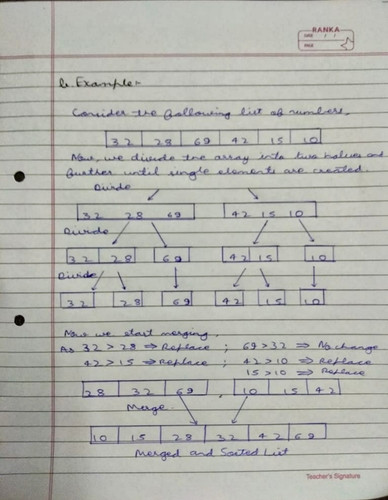 RANKA
DATE / /
PAGE
b. Example:-
Consider the following list of numbers.
32 28 69 42 15 10
Now, we divide the array into two halves and
further until single elements are created.
Divide
32 28 69 42 15 10
Divide
32 28 69 42 15 10
Divide
32 28 69 42 15 10
Now we start merging.
As 32 > 28 ⇒ Replace ; 69 > 32 ⇒ No change
42 > 15 ⇒ Replace ; 42 > 10 ⇒ Replace
15 > 10 ⇒ Replace
28 32 69 , 10 15 42
Merge
10 15 28 32 42 69
Merged and Sorted List
Teacher's Signature